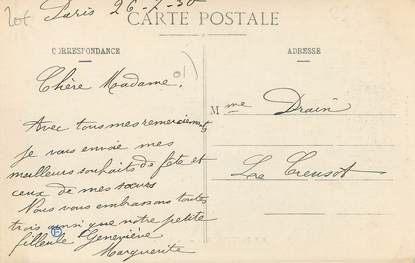 Paris 26-2-30
CARTE POSTALE
CORRESPONDANCE
ADRESSE
Chère Madame,
Avec tous mes remerciements
je vous envoie mes
meilleurs souhaits de fête et
ceux de mes sœurs
Nous vous embrassons toutes
trois ainsi que notre petite
filleule Geneviève
Marguerite
Mme Drain
Le Creusot